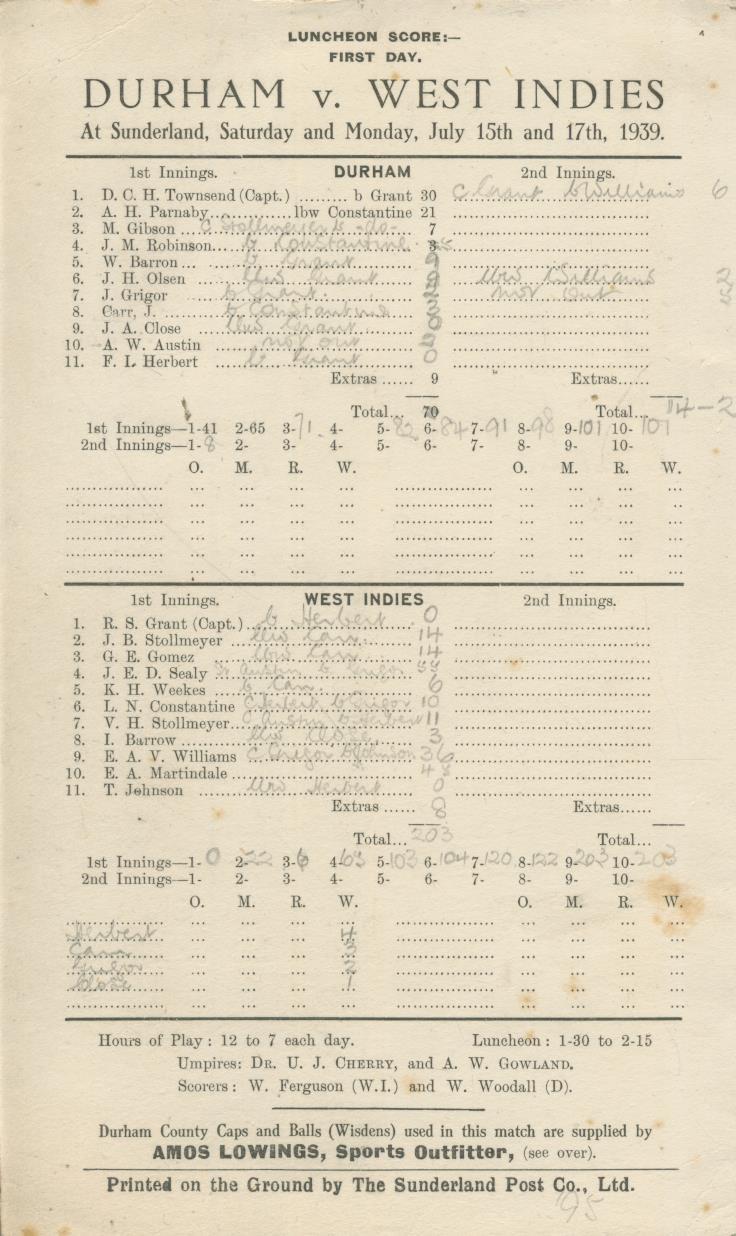 LUNCHEON SCORE:—
FIRST DAY.
DURHAM v. WEST INDIES
At Sunderland, Saturday and Monday, July 15th and 17th, 1939.
1st Innings. DURHAM 2nd Innings.
1. D. C. H. Townsend (Capt.) ......... b Grant 30 c Grant b Williams 6
2. A. H. Parnaby............lbw Constantine 21
3. M. Gibson c Stollmeyer b -do- 7
4. J. M. Robinson b Constantine
5. W. Barron b Grant 9
6. J. H. Olsen lbw Grant 9 lbw Williams 2
7. J. Grigor b Grant 2 not out
8. Carr, J. b Constantine 3
9. J. A. Close lbw Grant 0
10. A. W. Austin not out 2
11. F. I. Herbert b Grant 0
Extras ...... 9 Extras......
Total... 70 Total... 14-2
1st Innings—1-41 2-65 3-71 4- 5-82 6-84 7-91 8-98 9-101 10-101
2nd Innings—1-8 2- 3- 4- 5- 6- 7- 8- 9- 10-
O. M. R. W. O. M. R. W.
1st Innings. WEST INDIES 2nd Innings.
1. R. S. Grant (Capt.) b Herbert 0
2. J. B. Stollmeyer lbw Carr 14
3. G. E. Gomez lbw Carr 14
4. J. E. D. Sealy st Austin b Grigor
5. K. H. Weekes b Carr 6
6. L. N. Constantine c Herbert b Grigor 10
7. V. H. Stollmeyer c Austin b Herbert 11
8. I. Barrow lbw Close 3
9. E. A. V. Williams c Grigor b Robinson 36
10. E. A. Martindale 48
11. T. Johnson lbw Herbert 0
Extras ...... 8 Extras......
Total... 203 Total...
1st Innings—1-0 2-22 3- 4-63 5-103 6-104 7-120 8-122 9-203 10-203
2nd Innings—1- 2- 3- 4- 5- 6- 7- 8- 9- 10-
O. M. R. W. O. M. R. W.
Herbert 4
Carr 3
Grigor 2
Close 1
Hours of Play : 12 to 7 each day. Luncheon : 1-30 to 2-15
Umpires: DR. U. J. CHERRY, and A. W. GOWLAND.
Scorers : W. Ferguson (W.I.) and W. Woodall (D).
Durham County Caps and Balls (Wisdens) used in this match are supplied by
AMOS LOWINGS, Sports Outfitter, (see over).
Printed on the Ground by The Sunderland Post Co., Ltd.
95